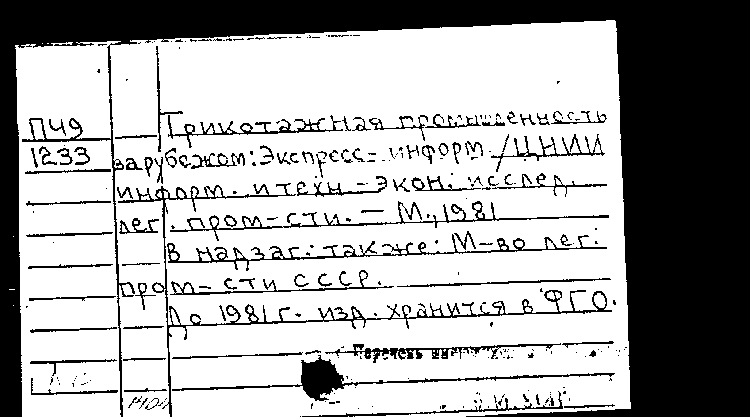 П49
1233
Трикотажная промышленность
зарубежом: Экспресс-информ. / ЦНИИ
информ. и техн.-экон. исслед.
лег. пром-сти. — М., 1981
В надзаг.: также: М-во лег.
пром-сти СССР.
До 1981 г. изд. хранится в ФГО.
Перечень